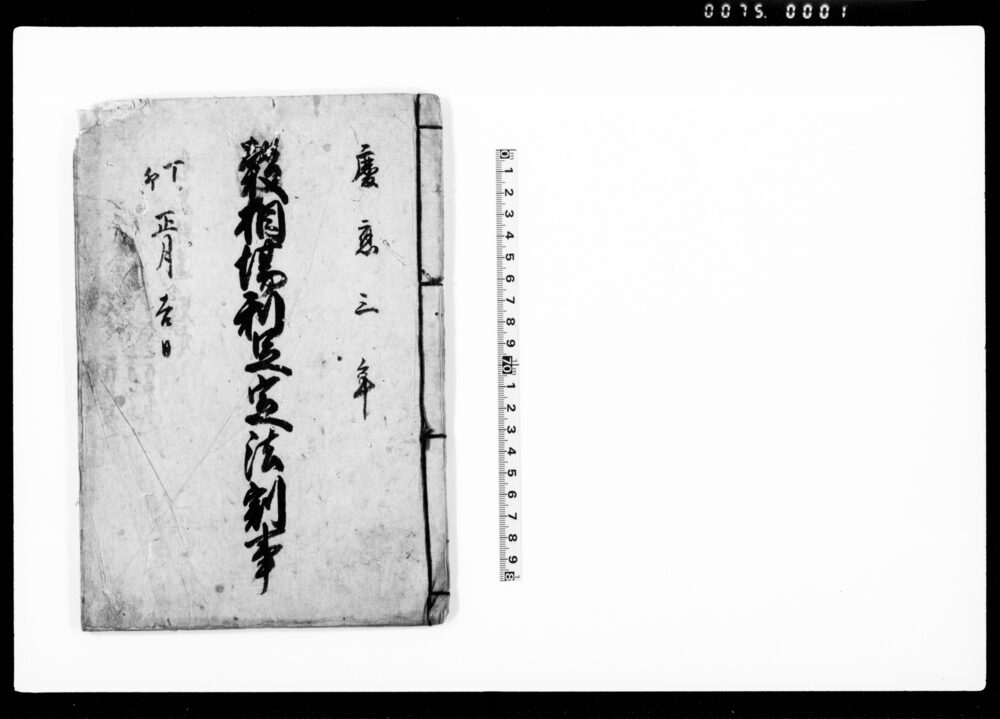 0075. 0001
慶應三年
穀相場利足定法割事
丁卯 正月吉日
0 1 2 3 4 5 6 7 8 9 10 1 2 3 4 5 6 7 8 9